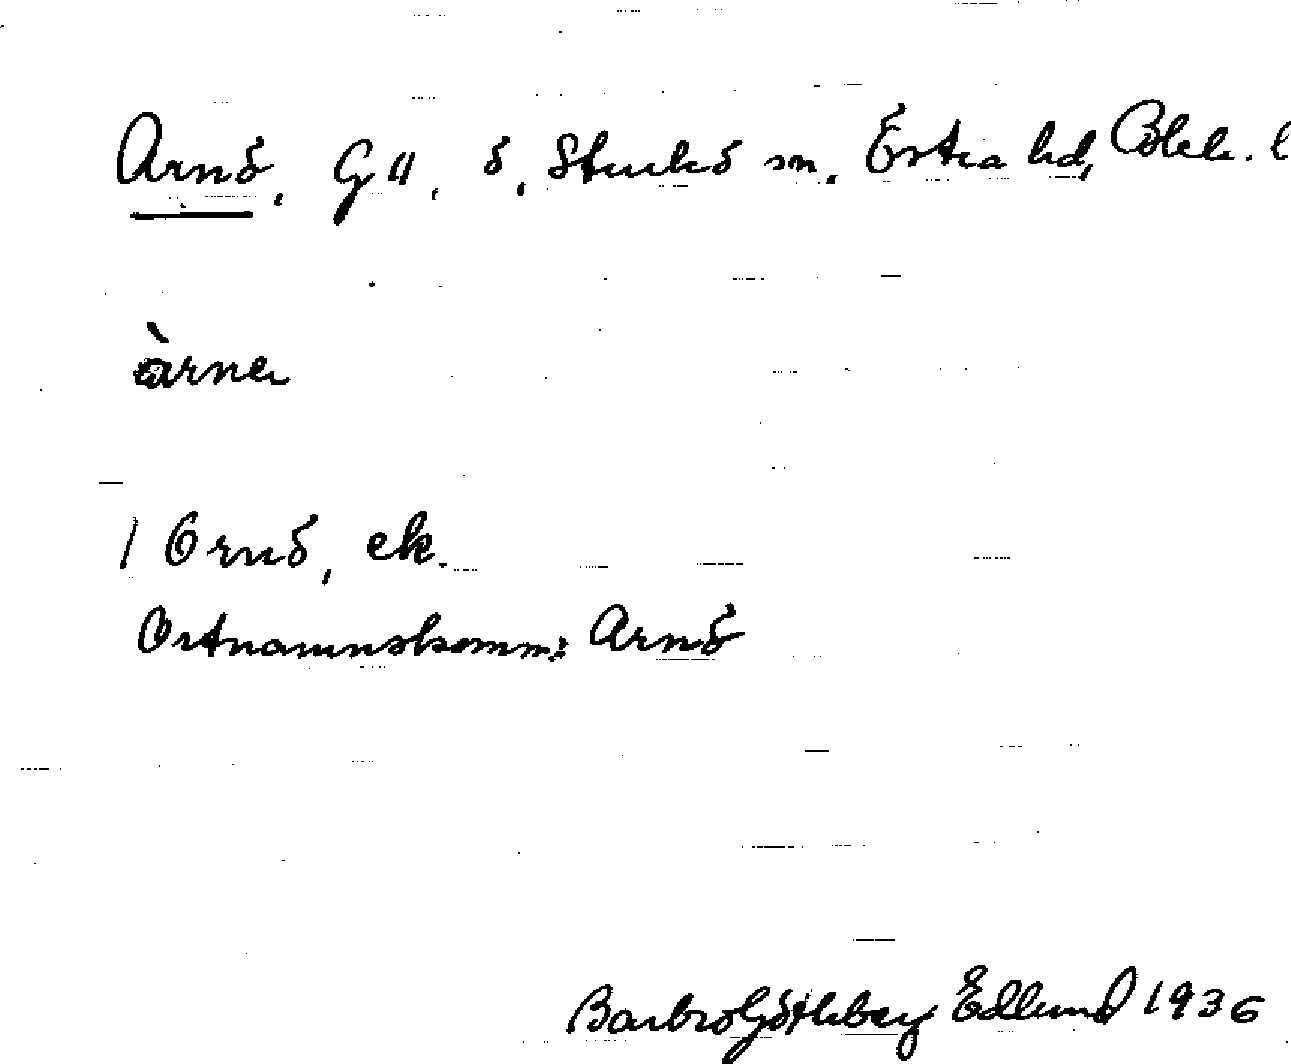 Arnö, Gll, ö, Sturkö sn. Östra hd, Blek. l
àrne
/ Ornö, ek.
Ortnamnskomm: Arnö
Barbro Götheberg Edlund 1936